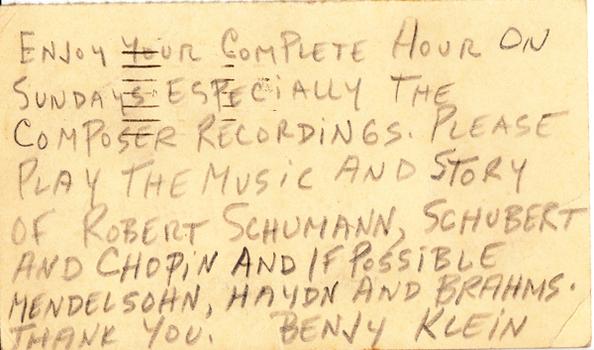 ENJOY YOUR COMPLETE HOUR ON
SUNDAYS ESPECIALLY THE
COMPOSER RECORDINGS. PLEASE
PLAY THE MUSIC AND STORY
OF ROBERT SCHUMANN, SCHUBERT
AND CHOPIN AND IF POSSIBLE
MENDELSOHN, HAYDN AND BRAHMS.
THANK YOU. BENJY KLEIN